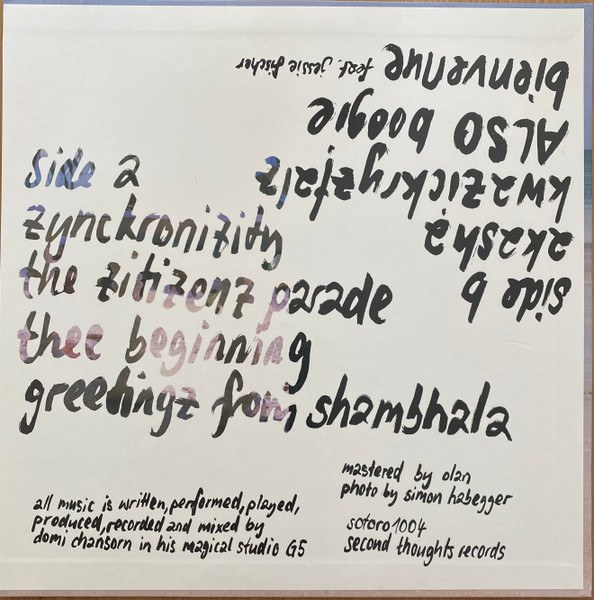 side a
zynckronizity
the zitizenz parade
thee beginning
greetingz from shambhala
side b
akasha
kwazickryztalz
ALSO boogie
bienvenue feat. jessie fischer
all music is written, performed, played,
produced, recorded and mixed by
domi chansorn in his magical studio G5
mastered by olan
photo by simon habegger
sotoro1004
second thoughts records